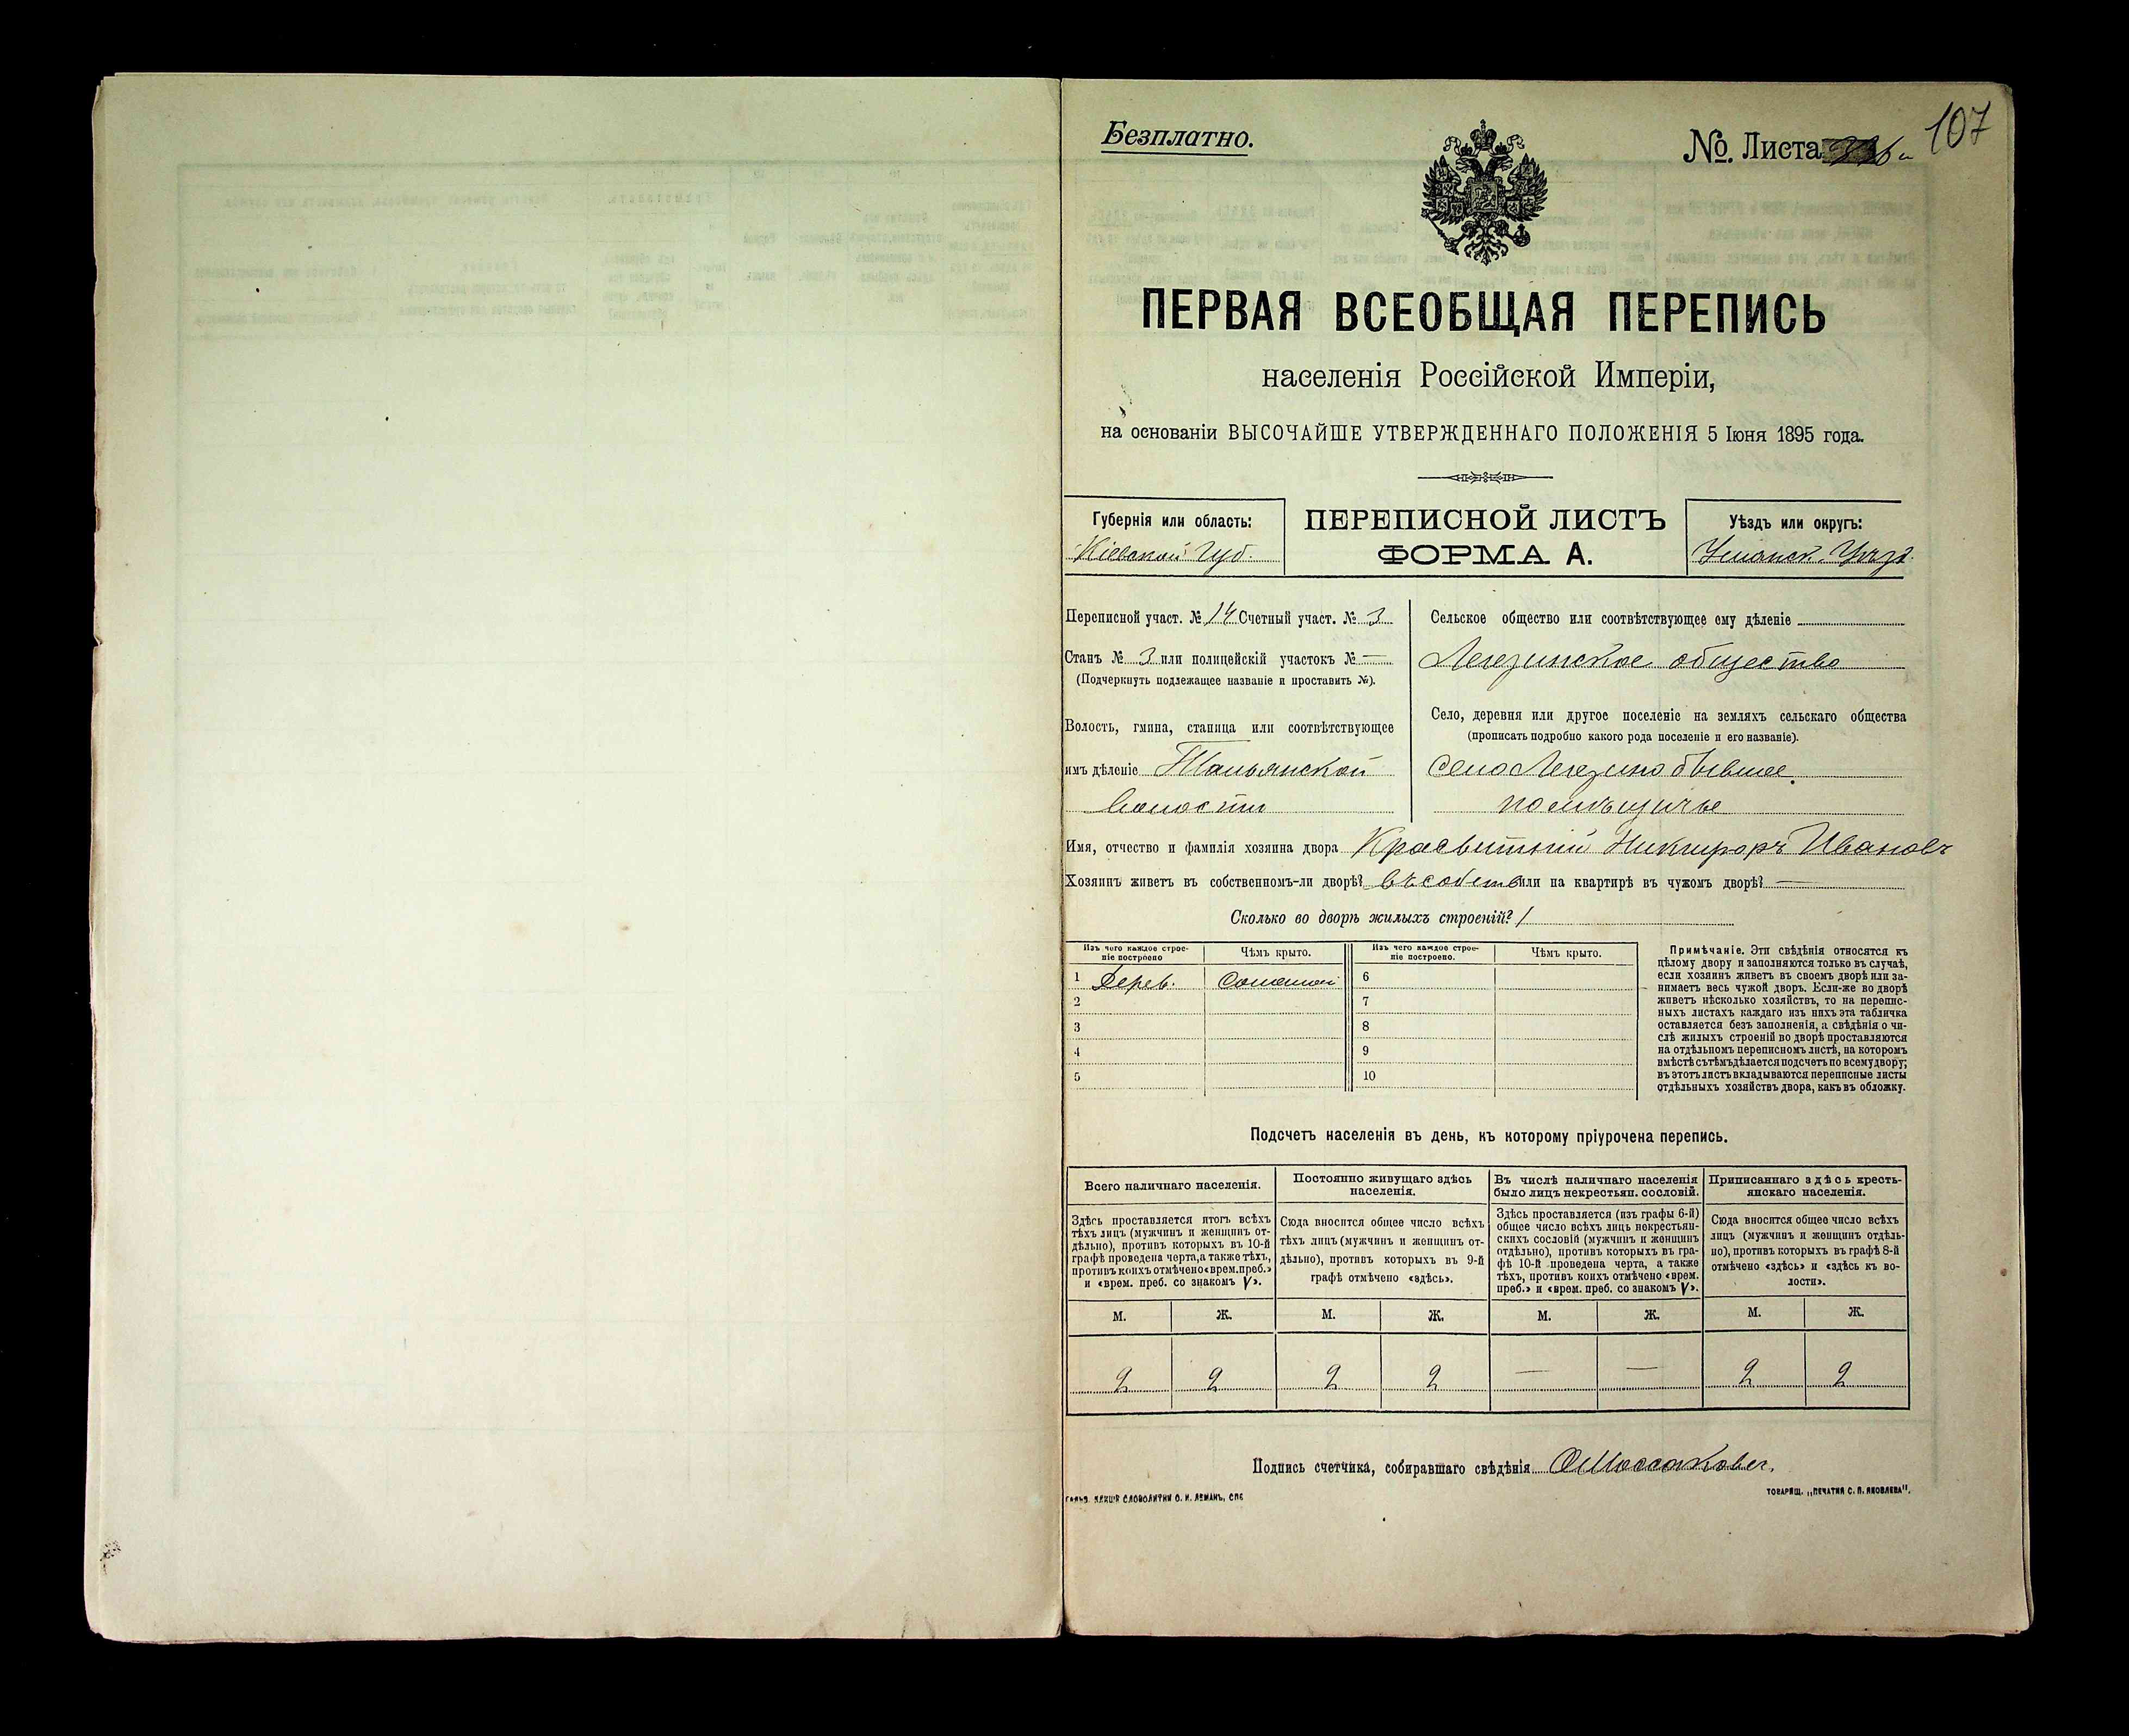 Безплатно.
№. Листа
107
ПЕРВАЯ ВСЕОБЩАЯ ПЕРЕПИСЬ
населенія Россійской Имперіи,
на основаніи ВЫСОЧАЙШЕ УТВЕРЖДЕННАГО ПОЛОЖЕНІЯ 5 Іюня 1895 года.
Губернія или область:
Кіевской Губ.
ПЕРЕПИСНОЙ ЛИСТЪ
ФОРМА А.
Уѣздъ или округъ:
Уманск. Уѣзд.
Переписной участ. № 14 Счетный участ. № 3
Станъ № 3 или полицейскій участокъ № —
(Подчеркнуть подлежащее названіе и проставить №).
Волость, гмина, станица или соотвѣтствующее
имъ дѣленіе Тальянской
Волости
Сельское общество или соотвѣтствующее ему дѣленіе
Легезинское общество
Село, деревня или другое поселеніе на земляхъ сельскаго общества
(прописать подробно какого рода поселеніе и его названіе).
село Легезино бывшее
помѣщичье
Имя, отчество и фамилія хозяина двора Красвитній Никифоръ Ивановъ
Хозяинъ живетъ въ собственномъ-ли дворѣ? въ собств или на квартирѣ въ чужомъ дворѣ? —
Сколько во дворѣ жилыхъ строеній? 1
Изъ чего каждое строе-
ніе построено
Чѣмъ крыто.
Изъ чего каждое строе-
ніе построено.
Чѣмъ крыто.
1 Дерев. Соломой 6
2 7
3 8
4 9
5 10
Примѣчаніе. Эти свѣдѣнія относятся къ
цѣлому двору и заполняются только въ случаѣ,
если хозяинъ живетъ въ своемъ дворѣ или за-
нимаетъ весь чужой дворъ. Если-же во дворѣ
живетъ нѣсколько хозяйствъ, то на перепис-
ныхъ листахъ каждаго изъ нихъ эта табличка
оставляется безъ заполненія, а свѣдѣнія о чи-
слѣ жилыхъ строеній во дворѣ проставляются
на отдѣльномъ переписномъ листѣ, на которомъ
вмѣстѣ съ тѣмъ дѣлается подсчетъ по всему двору;
въ этотъ листъ вкладываются переписные листы
отдѣльныхъ хозяйствъ двора, какъ въ обложку.
Подсчетъ населенія въ день, къ которому пріурочена перепись.
Всего наличнаго населенія.
Здѣсь проставляется итогъ всѣхъ
тѣхъ лицъ (мужчинъ и женщинъ от-
дѣльно), противъ которыхъ въ 10-й
графѣ проведена черта, а также тѣхъ,
противъ коихъ отмѣчено «врем. преб.»
и «врем. преб. со знакомъ V».
Постоянно живущаго здѣсь
населенія.
Сюда вносится общее число всѣхъ
тѣхъ лицъ (мужчинъ и женщинъ от-
дѣльно), противъ которыхъ въ 9-й
графѣ отмѣчено «здѣсь».
Въ числѣ наличнаго населенія
было лицъ некрестьян. сословій.
Здѣсь проставляется (изъ графы 6-й)
общее число всѣхъ лицъ некрестьян-
скихъ сословій (мужчинъ и женщинъ
отдѣльно), противъ которыхъ въ гра-
фѣ 10-й проведена черта, а также
тѣхъ, противъ коихъ отмѣчено «врем.
преб.» и «врем. преб. со знакомъ V».
Приписаннаго здѣсь кресть-
янскаго населенія.
Сюда вносится общее число всѣхъ
лицъ (мужчинъ и женщинъ отдѣль-
но), противъ которыхъ въ графѣ 8-й
отмѣчено «здѣсь» и «здѣсь къ во-
лости».
М. Ж. М. Ж. М. Ж. М. Ж.
2 2 2 2 — — 2 2
Подпись счетчика, собиравшаго свѣдѣнія
СЛОВОЛИТНИ О. И. ЛЕМАНЪ, СПБ
ТОВАРИЩ. „ПЕЧАТНЯ С. П. ЯКОВЛЕВА".